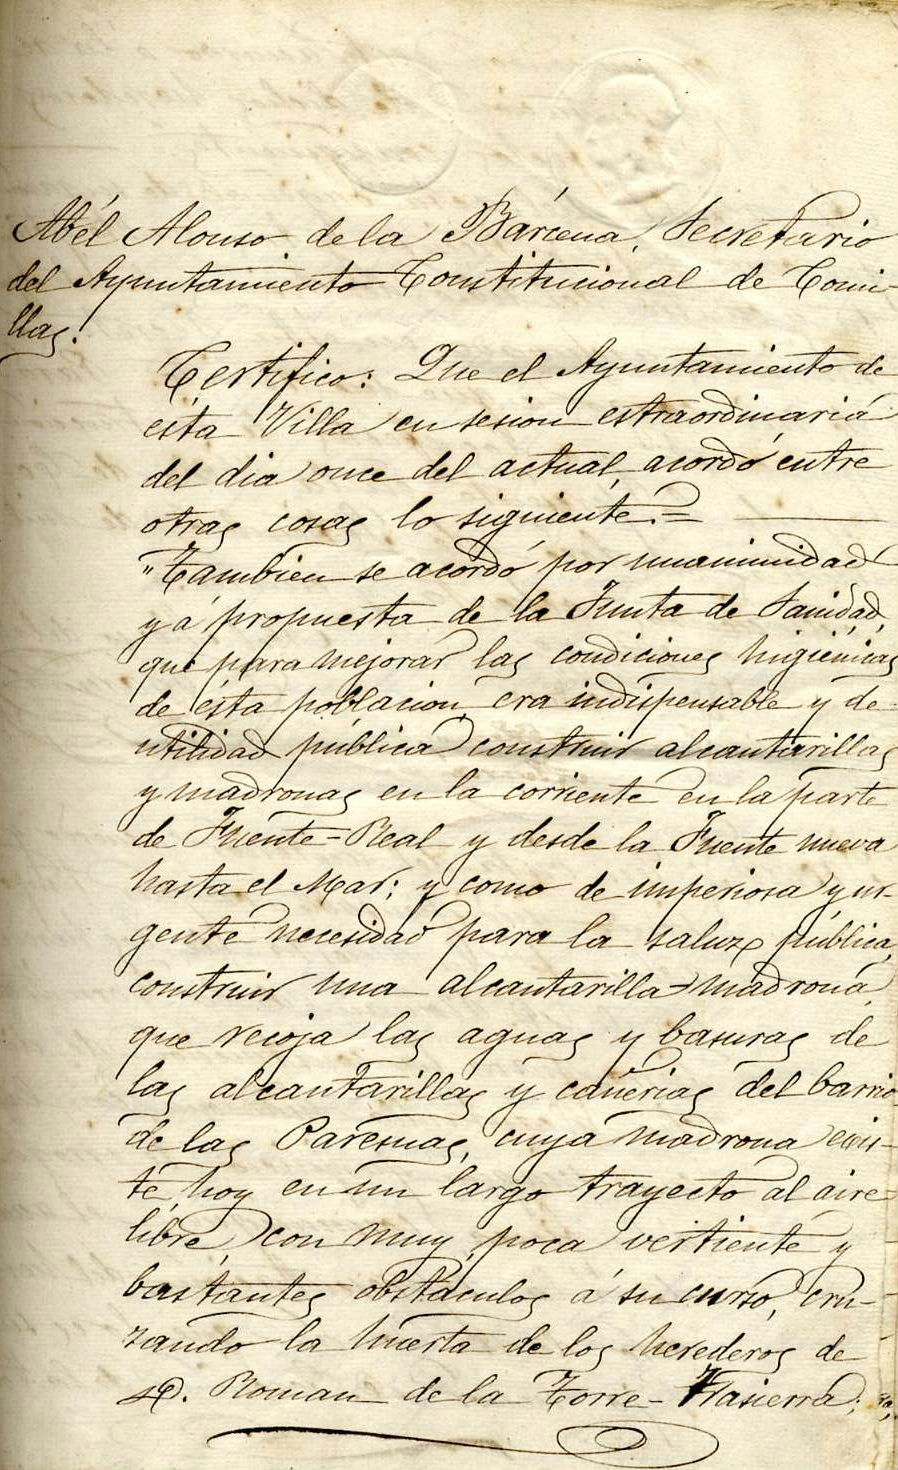 Abél Alonso de la Bárcena, Secretario
del Ayuntamiento Constitucional de Comi-
llas.
Certifico: Que el Ayuntamiento de
ésta Villa en sesion estraordinaria
del dia once del actual, acordó entre
otras cosas lo siguiente.=
"Tambien se acordó por unanimidad
y á propuesta de la Junta de Sanidad,
que para mejorar las condiciones higiénicas
de ésta poblacion, era indispensable y de
utilidad pública construir alcantarillas
y madronas en la corriente en la parte
de Fuente=Real y desde la Fuente nueva
hasta el Mar; y como de imperiosa y ur-
gente necesidad para la saluz pública,
construir una alcantarilla=madrona,
que recoja las aguas y basuras de
las alcantarillas y cañerias del barrio
de las Paresuas, cuya madrona exis-
te, hoy en un largo trayecto al aire
libre, con muy poca vertiente y
bastantes obstáculos á su curso, cru-
zando la huerta de los herederos de
D. Roman de la Torre-Trasierra;